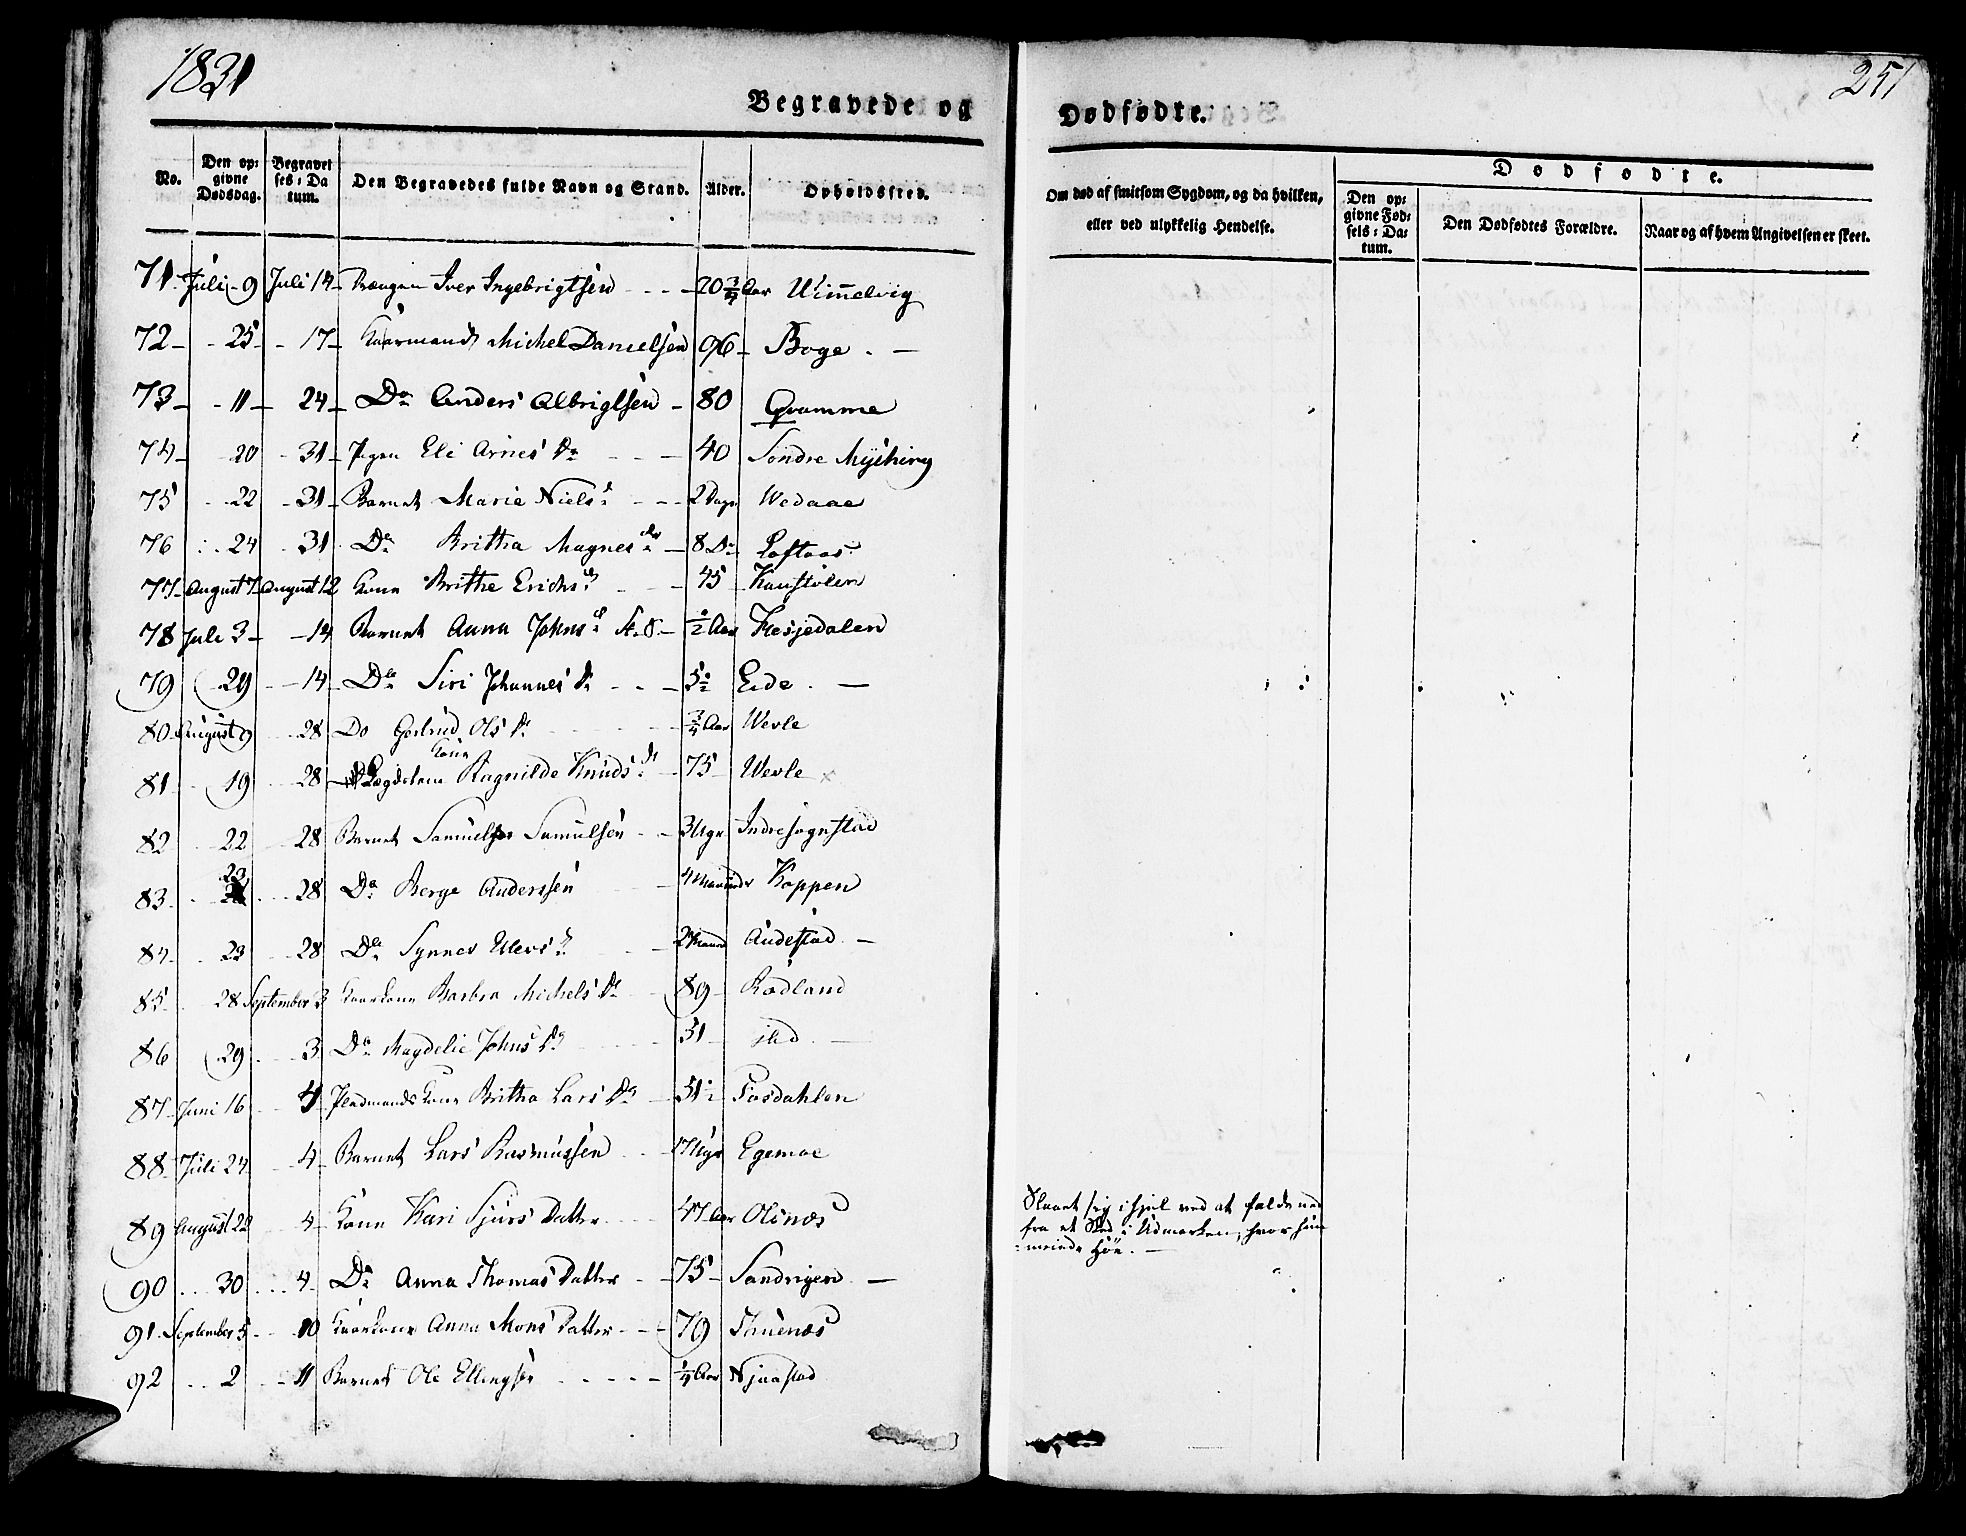 1831
251
Begravede og Dødfødte.
No. Den opgivne Dødsdag. Begravelses-Datum. Den Begravedes fulde Navn og Stand. Alder. Opholdssted. Om død af smitsom Sygdom, og da hvilken, eller ved ulykkelig Hendelse.
Dødfødte.
Den opgivne Fødsels-Datum. Den Dødfødtes Forældre. Naar og af hvem Angivelsen er skeet.
71 Juli 9 Juli 14 Drengen Iver Ingebrigtsen 20 3/4 Aar Wimelvig
72 25 17 Kaarmand Michel Danielsen 96 Boge
73 11 24 Do Anders Olbrigtsen 80 Qvamme
74 20 31 Pigen Eli Arnes Dr 40 Søndre Mysking
75 22 31 Barnet Marie Niels d 2 Dage Wedaae
76 24 31 Do Britha Magnes dr 8 Do Loftaas
77 August 7 August 12 Kone Brithe Erichs d 45 Kaustølen
78 Juli 3 14 Barnet Anna Johns d 1/2 Aar Hesjedalen
79 29 14 Do Siri Johannes d 5 1/2 Eide
80 August 9 28 Do Gertrud Ols Dr 3/4 Aar Wevle
81 19 28 Lægdslem Kone Ragnilde Knuds d 75 Wevle
82 22 28 Barnet Samuel Samulsen 3 Uger Indresognstad
83 23 28 Do Berge Anderssen 4 Maaneder Koppen
84 23 28 Do Synnev Ulevs d 2 Maand Audestad
85 28 September 3 Kaarkone Barbra Michels Dr 89 Rødland
86 29 3 Do Magdelie Johns Dr 51 ibid
87 Juni 16 4 Pladsmands Kone Britha Lars Dr 31 1/2 Fosdahlen
88 Juli 24 4 Barnet Lars Rasmussen 17 Uger Egemoe
89 August 22 4 Kone Kari Sjurs Datter 47 Aar Olsnæs Slaaet sig ihjel ved at falde ned
fra et Sted i Udmarken, hvor hun
meiede Høe.
90 30 4 Do Anna Thomas Datter 75 Sandvigen
91 September 5 10 Kaarkone Anna Mons Datter 79 Thuenæs
92 2 11 Barnet Ole Ellingsen 1/4 Aar Njaastad